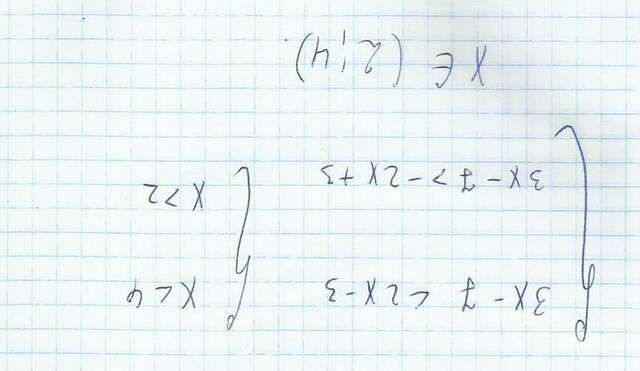 { 3x - 7 < 2x - 3 { x < 4
3x - 7 > -2x + 3 x > 2
x ∈ (2;4).